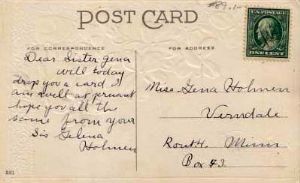 #89.1-
POST CARD
FOR CORRESPONDENCE
FOR ADDRESS
Dear Sister Gena
will today
drop you a card I
am well at present
hope you all the
same from your
Sis Selma
Holmen
Miss Gena Holmen
Verndale
Route 4. Minn
Box 43.
ONE CENT